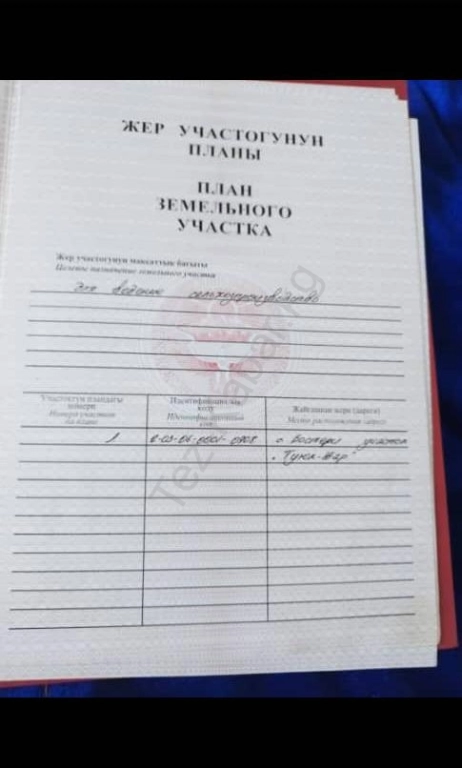 ЖЕР УЧАСТОГУНУН
ПЛАНЫ
ПЛАН
ЗЕМЕЛЬНОГО
УЧАСТКА
Жер участогунун максаттык багыты
Целевое назначение земельного участка
Для ведения сельхозпроизводство
Участоктун пландагы номери
Номера участков на плане
Идентификациялык коду
Идентификационный код
Жайгашкан жери (дареги)
Место расположения (адрес)
1
с. Бостери участок
Tez Tabar.kg